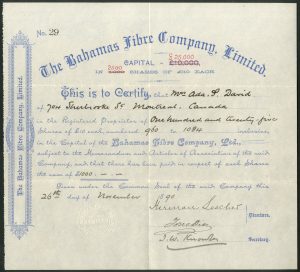 No. 29
The Bahamas Fibre Company, Limited.
£25,000
CAPITAL - £10,000,
2500
IN SHARES OF £10 EACH
This is to Certify, that Mrs Ada. P. David
of 704 Sherbrooke St Montreal. Canada
is the Registered Proprietor of One hundred and twenty five
Shares of £10 each, numbered 960 to 1084 inclusive,
in the Capital of the Bahamas Fibre Company, Ltd.,
subject to the Memorandum and Articles of Association of the said
Company, and that there has been paid in respect of each Shares
the sum of £1000
Given under the Common Seal of the said Company this
26th day of November 1890
Herman
Directors.
J. W.
Secretary.
The Bahamas Fibre Company, Limited.